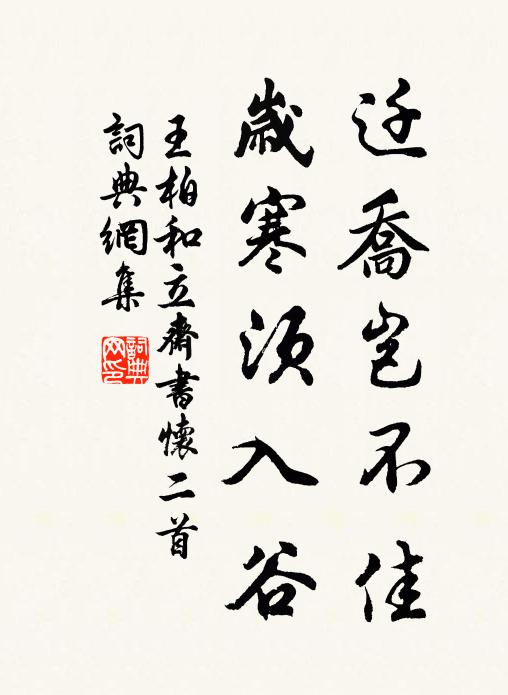 迁喬岂不佳
歲寒須入谷
王柏和立齋書懷二首
詞典網集
詞典
网印